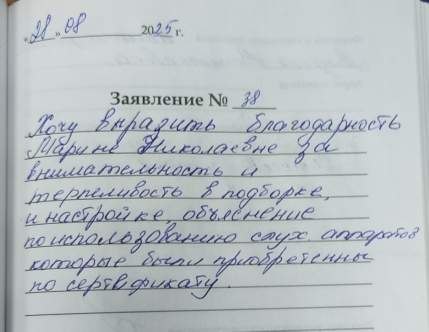 "28" 08 2025 г.
Заявление № 38
Хочу выразить благодарность
Марине Николаевне за
внимательность и
терпеливость в подборке,
и настройке, объяснение
по использованию слух. аппаратов
которые были приобретенны
по сертификату.